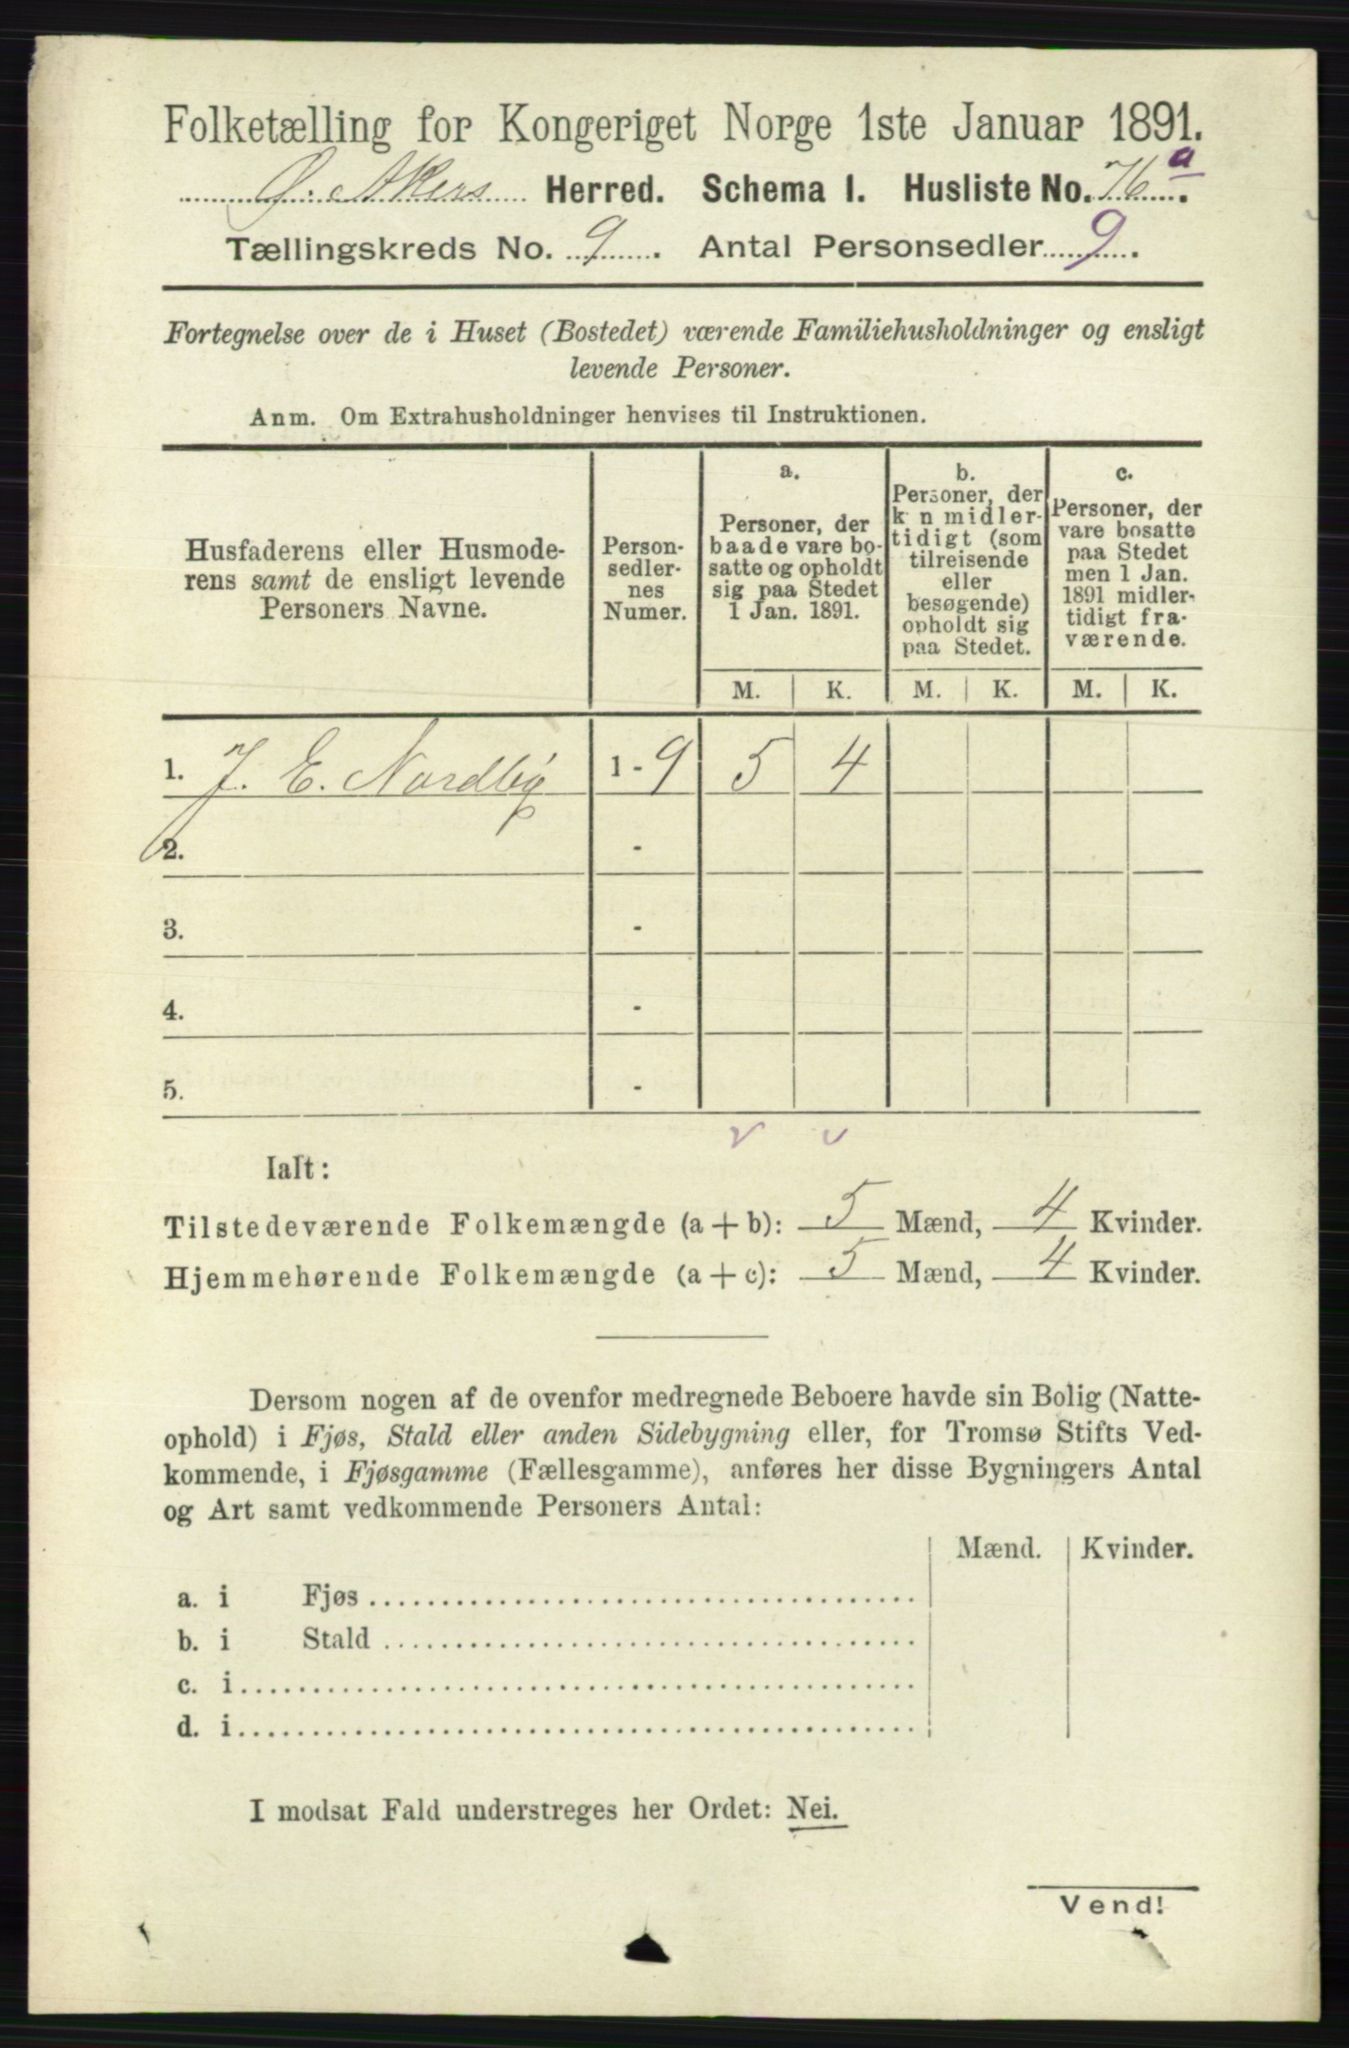 Folketælling for Kongeriget Norge 1ste Januar 1891.
Ø. Akers Herred. Schema 1. Husliste No. 76 a.
Tællingskreds No. 9. Antal Personsedler 9.
Fortegnelse over de i Huset (Bostedet) værende Familiehusholdninger og ensligt
levende Personer.
Anm. Om Extrahusholdninger henvises til Instruktionen.
Husfaderens eller Husmode-
rens samt de ensligt levende
Personers Navne.
Person-
sedler-
nes
Numer.
a.
Personer, der
baade vare bo-
satte og opholdt
sig paa Stedet
1 Jan. 1891.
b.
Personer, der
k n midler-
tidigt (som
tilreisende
eller
besøgende)
opholdt sig
paa Stedet.
c.
Personer, der
vare bosatte
paa Stedet
men 1 Jan.
1891 midler-
tidigt fra-
værende.
M. K. M. K. M. K.
1. J. E. Nordby 1 - 9 5 4
2. -
3. -
4. -
5. -
Ialt:
Tilstedeværende Folkemængde (a + b): 5 Mænd, 4 Kvinder.
Hjemmehørende Folkemængde (a + c): 5 Mænd, 4 Kvinder.
Dersom nogen af de ovenfor medregnede Beboere havde sin Bolig (Natte-
ophold) i Fjøs, Stald eller anden Sidebygning eller, for Tromsø Stifts Ved-
kommende, i Fjøsgamme (Fællesgamme), anføres her disse Bygningers Antal
og Art samt vedkommende Personers Antal:
Mænd. Kvinder.
a. i Fjøs
b. i Stald
c. i
d. i
I modsat Fald understreges her Ordet: Nei.
Vend!